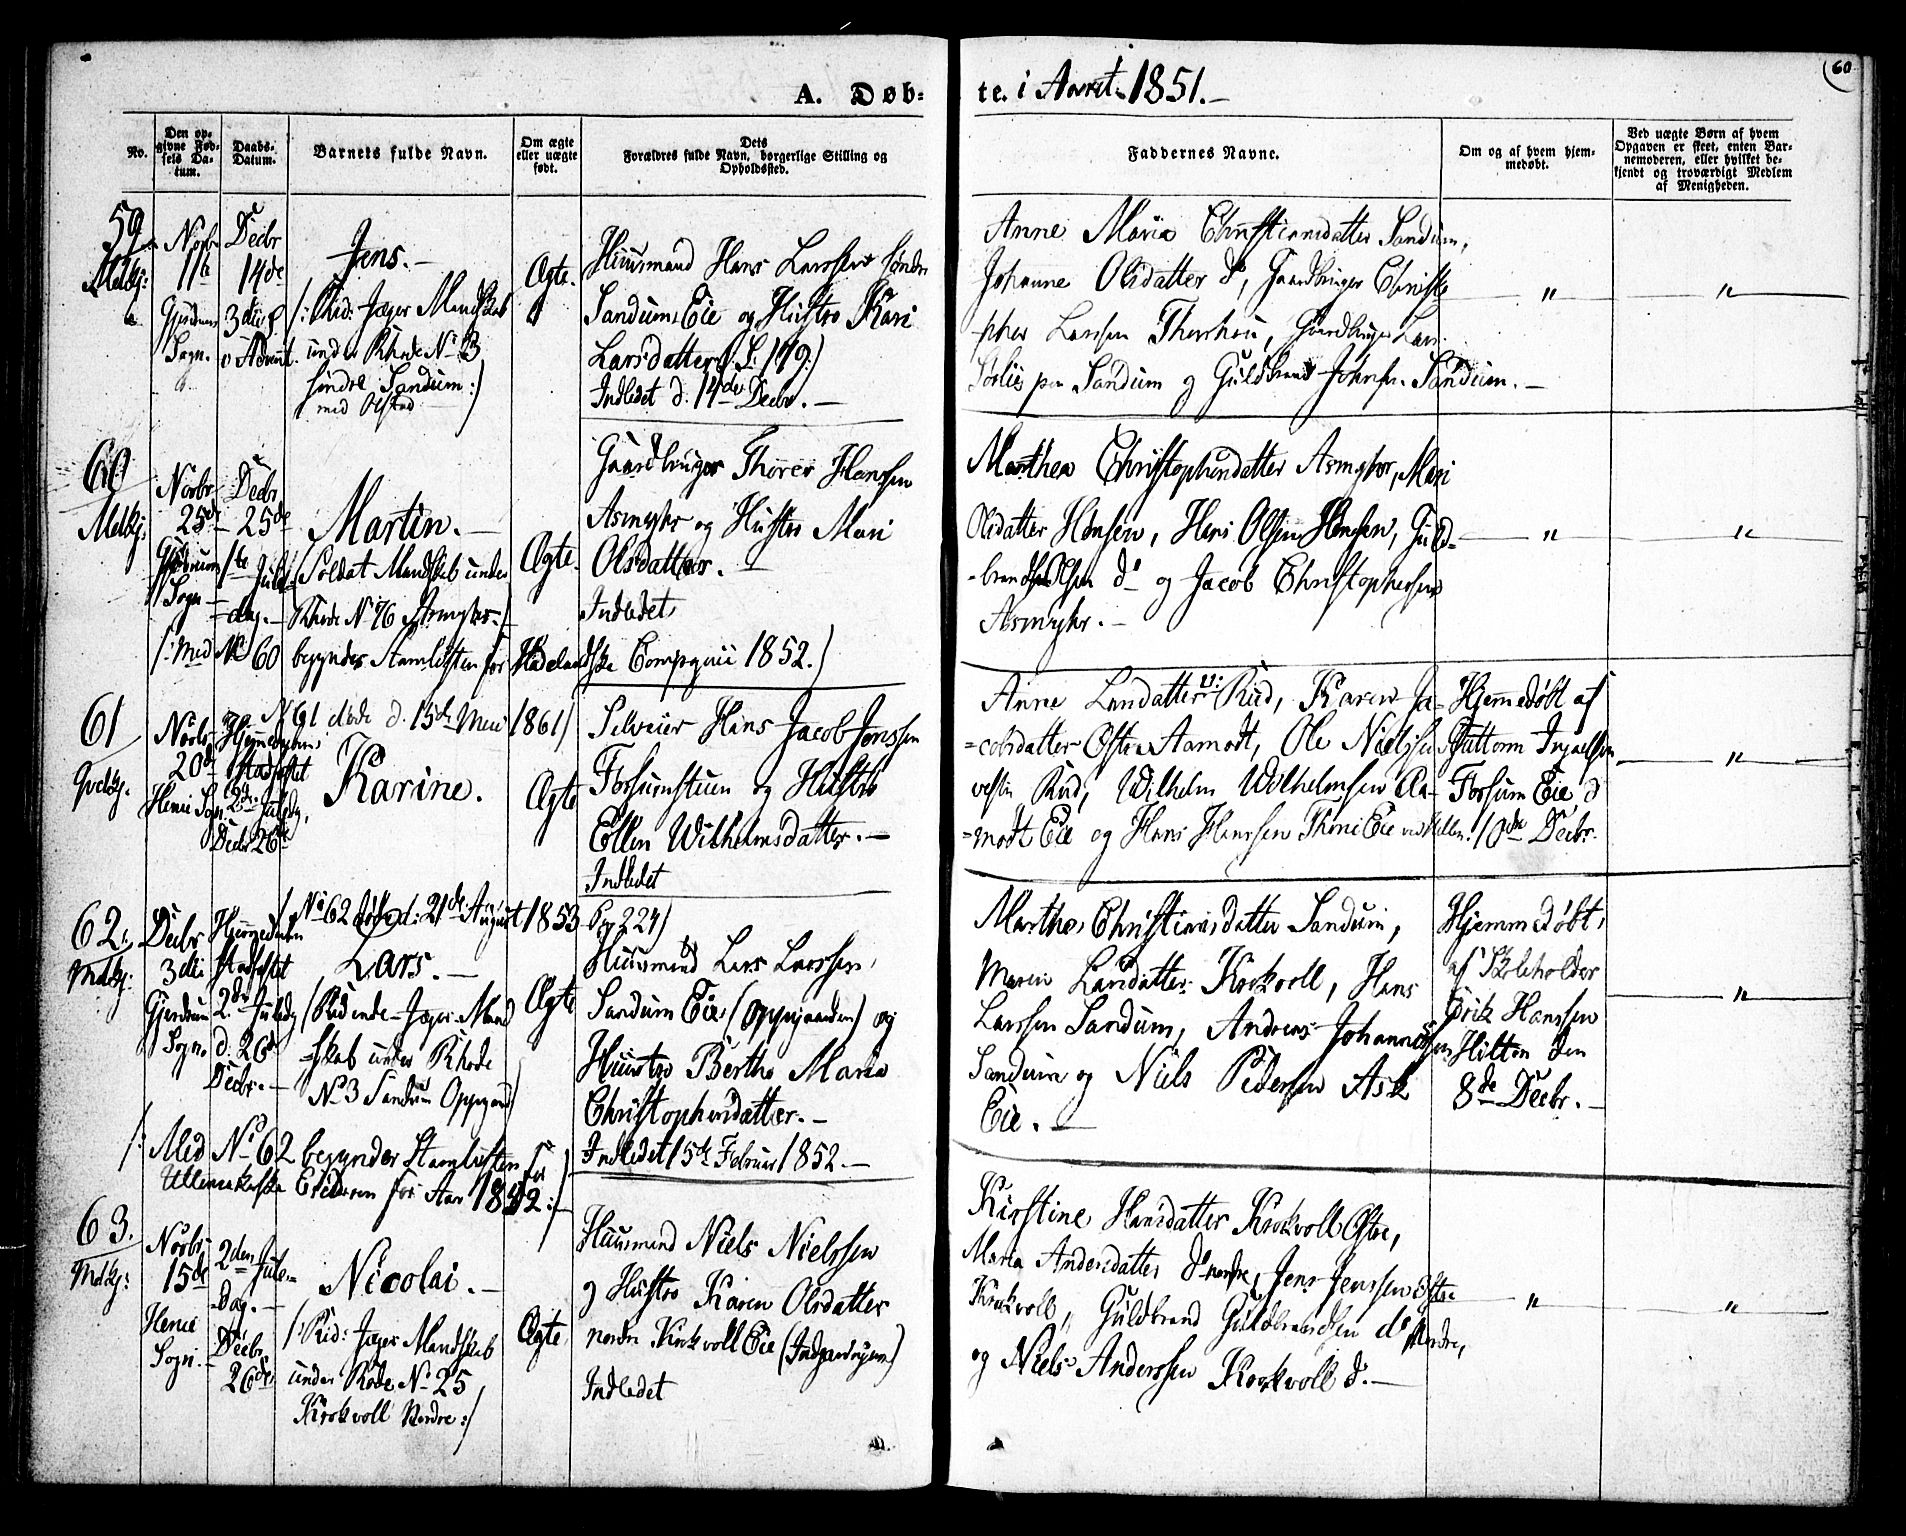 60
A. Døb-
te. i Aaret 1851.-
No.
Den op-
givne Fød-
sels Da-
tum.
Daabs-
Datum.
Barnets fulde Navn.
Om ægte
eller uægte
født.
Dets
Forældres fulde Navn, borgerlige Stilling og
Opholdssted.
Faddernes Navne.
Om og af hvem hjem-
medøbt.
Ved uægte Børn af hvem
Opgaven er skeet, enten Bar-
nemoderen, eller hvilket be-
kjendt og troværdigt Medlem
af Menigheden.
59
Novbr
11te
Sogn.
Decbr
14de
3die S.
i Advent.
Jens.-
/: Rid: Jæger Mandskab
under Rhode No 3
søndre Sandum :/
med Olstad
Ægte.
Huusmand Hans Larssen søndre
Sandum Eie og Hustro Kari
Larsdatter
Indledet d. 14de Decbr.-
Anne Maria Christiansdatter Sandum,
Johanne Olsdatter do, Gaardbruger Christo
pher Larssen Thorhou, Gaardbruger Lars
paa Sandum og Guldbrand Johnsen Sandum.-
"
"
60
Novbr
25de
Gjerdrum
Sogn
Decbr
25de
1ste Jule
dag.-
Martin.-
(Soldat Mandskab under
Rhode No 76 Asmyhr.)
Ægte.
Gaardbruger Thorer Hanssen
Asmyhr og Hustro Mari
Olsdatter.-
Indledet
/: Med No 60 begynder Stamlisten for Hadelandske Compagnii 1852.)
Marthea Christophersdatter Asmyhr, Mari
Olsdatter Hønsen, Hans Olsen Hønsen, Guld-
-brand Olsen do og Jacob Christophersen
Asmyhr.-
"
"
61
Novbr
20de
Heni Sogn
Hjemmedøbt,
stadfæstet
2den Juledag,
Decbr 26de
No 61 døde d. 15de Mai 1861)
Karine.
Ægte
Selveier Hans Jacob Jenssen
og Hustro
Ellen Wilhelmsdatter.-
Indledet
Anne Larsdatter Rud, Karen Ja-
-cobsdatter Østre Aamodt, Ole Nielssen
vestre Rud, Wilhelm Wilhelmsen Aa-
-modt Eie og Hans Hanssen Eie
Hjemmedøbt af
Guttorm
Fossum Eie d
10de Decbr.
"
62.
Decbr
3die
Gjerdrum
Sogn.
stadfæstet
2den Juledag
d. 26de
Decbr.-
No 62 døde d: 21de August 1853 Pag 224)
Lars.-
(Ridende-Jæger-Mand
-skab under Rhode
No 3 Sandum Oppegaard)
Ægte
Huusmand Lars Larssen,
Sandum Eie (Oppegaarden) og
Huustro Berthe Maria
Christophersdatter.-
Indledet 15de Februar 1852.-
/: Med No 62 begynder Stamlisten for
Ullensakerske Escadron for Aar 1852:/
Marthe Christiansdatter Sandum,
Maren Larsdatter Krokvoll, Hans
Larssen Sandum, Andreas Johannessen
Sandum og Niels Pedersen Ask
Eie.-
Hjemmedøbt,
af Skoleholder
Erik Hanssen
Hilton den
8de Decbr.-
"
63.
Novbr
15de
Heni
Sogn.
2den Jule-
Dag.-
Decbr
26de
Nicolai.-
/: Rid: Jæger Mandskab
under Rode No 25
Krokvoll Nordre:/
Ægte
Huusmand Niels Nielssen
og Hustro Karen Olsdatter
nordre Krokvoll Eie
Indledet
Kirstine Hansdatter Krokvoll Østre,
Maria Andersdatter do nordre, Jens Jenssen østre
Krokvoll, Guldbrand Guldbrandsen do Nordre,
og Niels Anderssen Krokvoll do.-
"
"